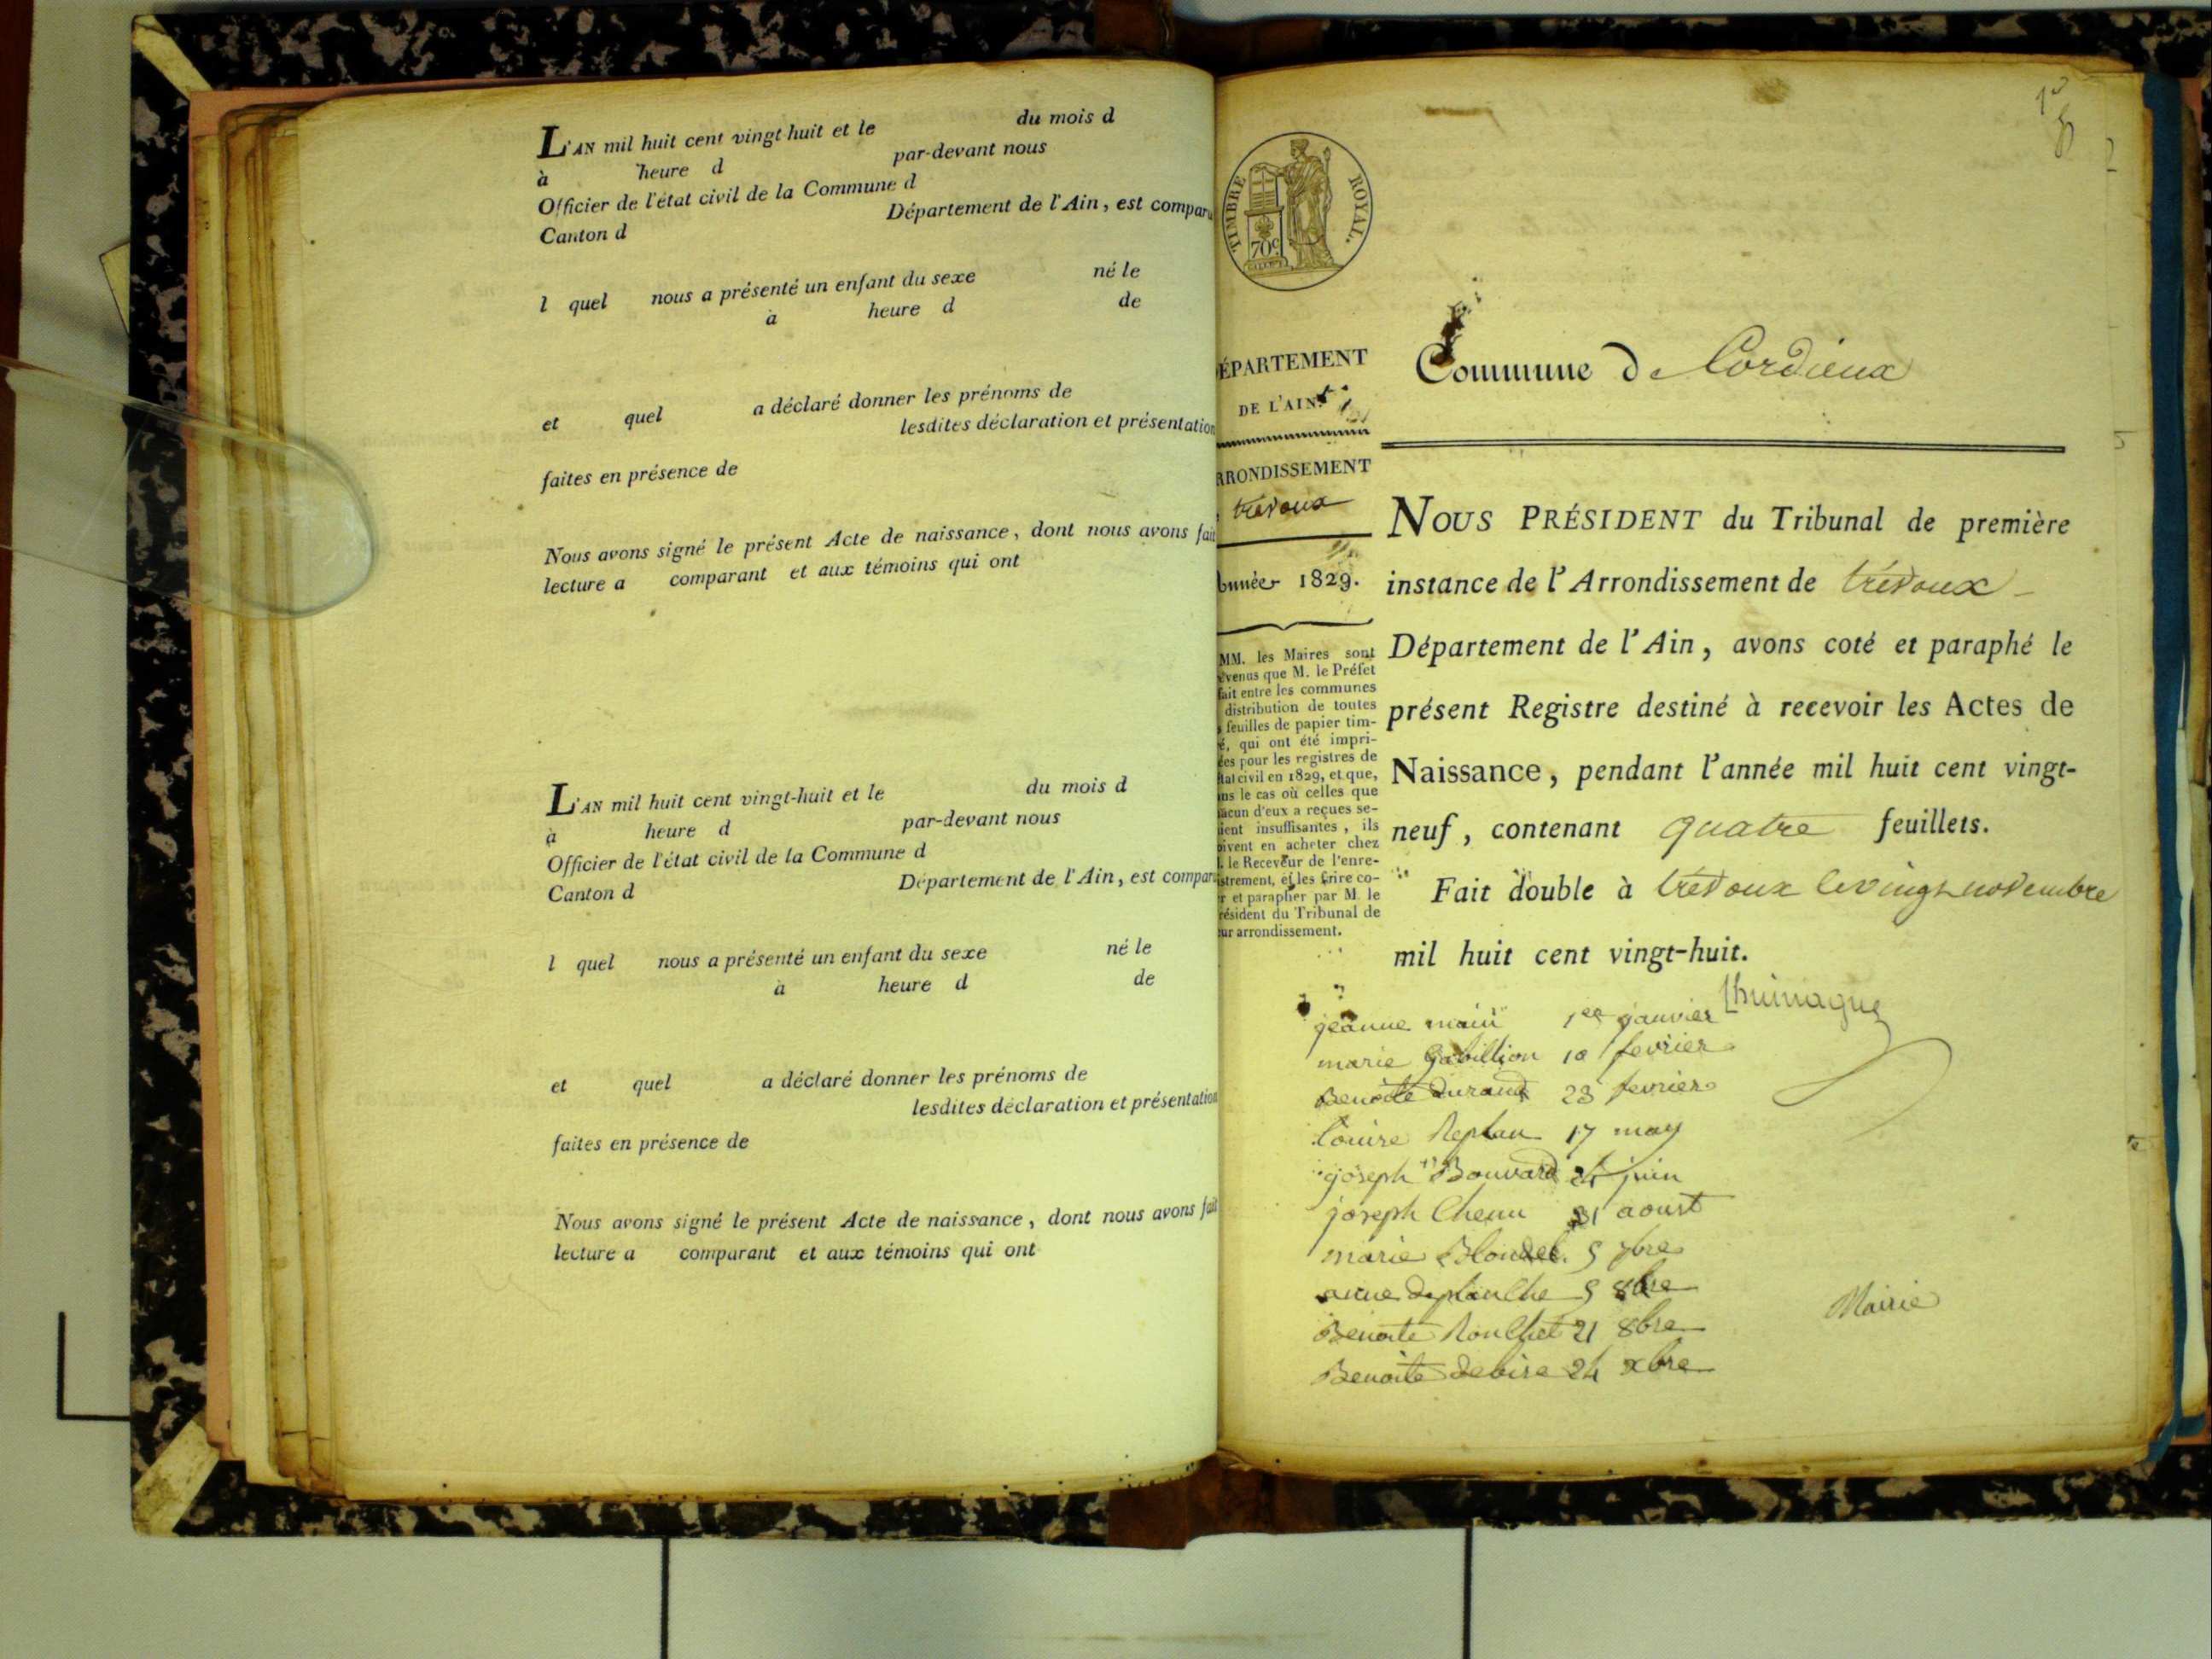 L'AN mil huit cent vingt-huit et le du mois d
à heure d par-devant nous
Officier de l'état civil de la Commune d
Canton d Département de l'Ain, est comparu
l quel nous a présenté un enfant du sexe né le
à heure d de
et quel a déclaré donner les prénoms de
lesdites déclaration et présentation
faites en présence de
Nous avons signé le présent Acte de naissance, dont nous avons fait
lecture a comparant et aux témoins qui ont
L'AN mil huit cent vingt-huit et le du mois d
à heure d par-devant nous
Officier de l'état civil de la Commune d
Canton d Département de l'Ain, est compar
l quel nous a présenté un enfant du sexe né le
à heure d de
et quel a déclaré donner les prénoms de
lesdites déclaration et présentation
faites en présence de
Nous avons signé le présent Acte de naissance, dont nous avons fait
lecture a comparant et aux témoins qui ont
TIMBRE ROYAL.
70c
ÉPARTEMENT
DE L'AIN.
RRONDISSEMENT
trevoux
Année 1829.
MM. les Maires sont
évenus que M. le Préfet
fait entre les communes
distribution de toutes
s feuilles de papier tim-
é, qui ont été impri-
ées pour les registres de
état civil en 1829, et que,
ns le cas où celles que
acun d'eux a reçues se-
ient insuffisantes, ils
oivent en acheter chez
l. le Receveur de l'enre-
istrement, et les faire co-
r et parapher par M. le
résident du Tribunal de
ur arrondissement.
Commune de Cordieux
NOUS PRÉSIDENT du Tribunal de première
instance de l'Arrondissement de trévoux
Département de l'Ain, avons coté et paraphé le
présent Registre destiné à recevoir les Actes de
Naissance, pendant l'année mil huit cent vingt-
neuf, contenant quatre feuillets.
Fait double à trévoux le vingt novembre
mil huit cent vingt-huit.
jeanne 1er janvier
marie Gabillion 10 fevrier
Benoite durand 23 fevrier
Louise Replan 17 may
joseph Bouvard 24 juin
joseph Chenu 31 aoust
marie Blondel 5 7bre
anne deplanche 5 8bre
Benoite Ronchet 21 8bre
Benoite debise 24 xbre
Mairie